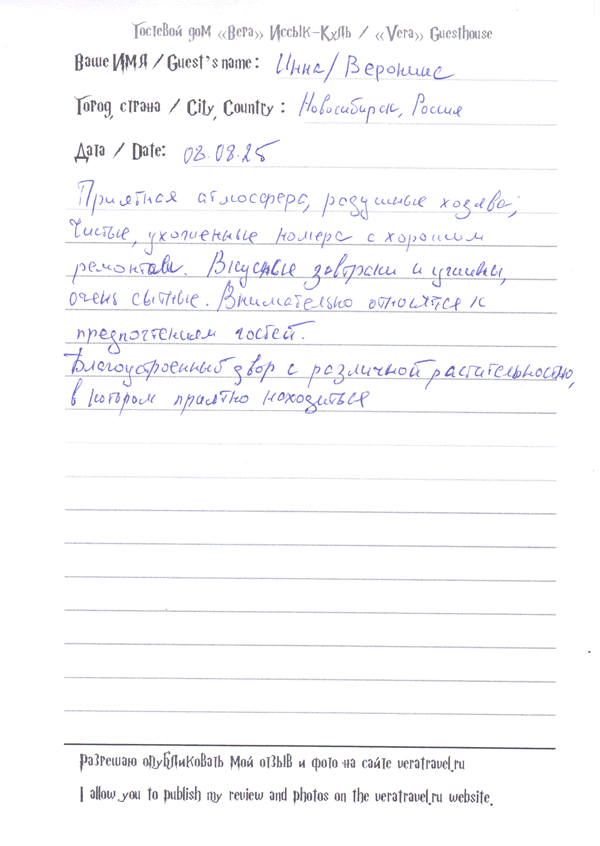 Гостевой дом «Вера» Иссык-Куль / «Vera» Guesthouse
Ваше ИМЯ / Guest's name: Инна/Вероника
Город, страна / City, Country : Новосибирск, Россия
Дата / Date: 08.08.25
Приятная атмосфера, радушные хозяева,
Чистые, ухоженные номера с хорошим
ремонтом. Вкусные завтраки и ужины,
очень сытные. Внимательно относятся к
предпочтениям гостей.
Благоустроенный двор с различной растительностью,
в котором приятно находиться
Разрешаю опубликовать мой отзыв и фото на сайте veratravel.ru
I allow you to publish my review and photos on the veratravel.ru website.